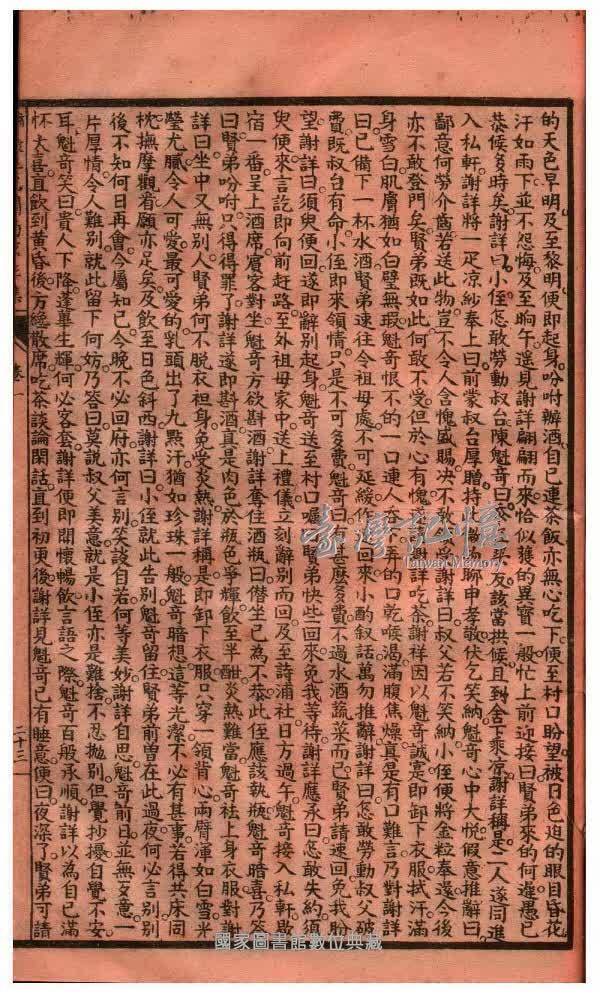 的天色早明及至黎明便即起身吩咐辦酒自已連茶飯亦無心吃下便至村口盼望被日色迫的眼目昏花
汗如雨下並不怨悔及至晌午遥見謝詳翩翩而來恰似獲的異寶一般忙上前迎接曰賢弟來的何遲愚已
恭候多時矣謝詳曰小侄怎敢勞動叔台陳魁奇曰
友該當拱候且到舍下乘凉謝詳稱是二人遂同進
入私軒謝詳將一疋凉紗奉上曰前蒙叔台厚贈特
聊申孝敬伏乞笑納魁奇心中大悦假意推辭曰
鄙意何勞介齒若送此物豈不令人含愧盛賜决不敢
受謝詳曰叔父若不笑納小侄便將金粒奉還今後
亦不敢登門矣賢弟既如此何敢不受但於心有愧
謝詳吃茶謝詳因以魁奇誠寔是即卸下衣服拭汗滿
身雪白肌膚猶如白璧無瑕魁奇恨不的一口連人吞
弄的口乾喉渴滿腹焦燥真是有口難言乃對謝詳
曰已備下一杯水酒賢弟速往令祖母處不可延緩作
回來小酌叙話萬勿推辭謝詳曰怎敢勞動叔父破
費既叔台有命小侄即來領情只是不可多費魁奇曰有甚麽多費不過水酒蔬菜而已賢弟請速回免我盼
望謝詳曰須臾便回遂即辭别起身魁奇送至村口囑
賢弟快些回來免我等待謝詳應承曰怎敢失約須
臾便來言訖即向前赶路至外祖毋家中送上禮儀立刻辭别而回及至詩浦社日方過午魁奇接入私軒敢
宿一番呈上酒席賓客對坐魁奇方欲斟酒謝詳奪住酒瓶曰僣坐已為不恭此侄應該執瓶魁奇暗喜乃答
曰賢弟吩咐只得得罪了謝詳遂即斟酒真是肉色於瓶色爭輝飲至半酣炎熱難當魁奇袪上身衣服對謝
詳曰坐中又無别人賢弟何不脱衣袒身免受炎熱謝詳稱是即卸下衣服只穿一領背心兩臂渾如白雪光
瑩尤膩令人可愛最可愛的乳頭出了九點汗猶如珍珠一般魁奇暗想這等光潔不必有甚事若得共床同
枕撫摩觀看願亦足矣及飲至日色斜西謝詳曰小侄就此告别魁奇留住賢弟前曽在此過夜何必言别别
後不知何日再會今屬知已今晚不必回府亦何言别笑談自若何等美妙謝詳自思魁奇前日並無歹意一
片厚情令人難别就此留下何妨乃答曰莫説叔父美意就是小侄亦是難捨不忍拋别但覺抄擾自覺不安
耳魁奇笑曰貴人下降蓬蓽生輝何必客套謝詳便即開懷暢飲言語之際魁奇百般承順謝詳以為自己滿
怀大喜直飲到黄昏後方纔散席吃茶談論閒話直到初更後謝詳見魁奇已有睡意便曰夜深了賢弟可請
卷一
二十三
臺灣記憶
Taiwan Memory
國家圖書館數位典藏